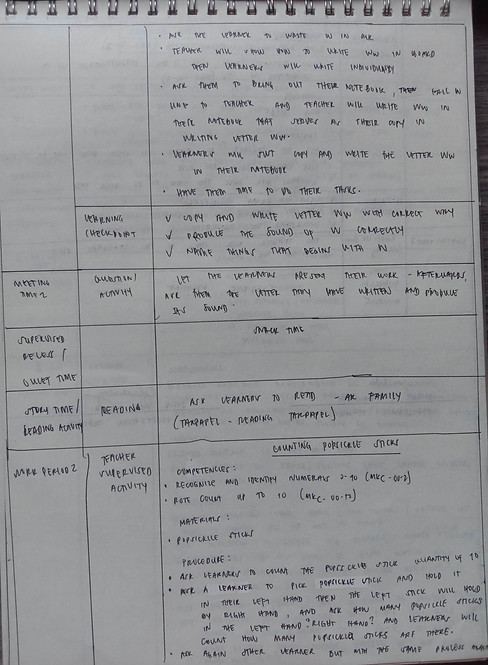 · ASK THE LEARNER TO WRITE W IN AIR
· TEACHER WILL SHOW HOW TO WRITE WW IN BOARD
THEN LEARNERS WILL WRITE INDIVIDUALLY
· ASK THEM TO BRING OUT THEIR NOTEBOOK, THEN FALL IN
LINE TO TEACHER AND TEACHER WILL WRITE WW IN
THEIR NOTEBOOK THAT SERVES AS THEIR COPY IN
WRITING LETTER WW.
· LEARNERS WILL COPY AND WRITE THE LETTER WW
IN THEIR NOTEBOOK
· HAVE THEM TIME TO DO THEIR TASKS.
LEARNING
CHECKPOINT
√ COPY AND WRITE LETTER WW WITH CORRECT WAY
√ PRODUCE THE SOUND OF W CORRECTLY
√ NAME THINGS THAT BEGINS WITH W
MEETING
TIME 2
QUESTION/
ACTIVITY
LET THE LEARNERS PRESENT THEIR WORK - AFTERWARDS,
ASK THEM THE LETTER THEY HAVE WRITTEN AND PRODUCE
ITS SOUND.
SUPERVISED
RECESS /
QUIET TIME
SNACK TIME
STORY TIME/
READING ACTIVITY
READING
ASK LEARNERS TO READ - AK FAMILY
(TARPAPEL - READING TARPAPEL)
WORK PERIOD 2
TEACHER
SUPERVISED
ACTIVITY
COUNTING POPSICKLE STICKS
COMPETENCIES:
· RECOGNIZE AND IDENTIFY NUMERALS (MKC-00-2)
· ROTE COUNT UP TO 10 (MKC-00-12)
MATERIALS:
· POPSICKLE STICKS
PROCEDURE:
· ASK LEARNERS TO COUNT THE POPSICKLES STICK QUANTITY OF 10
· ASK A LEARNER TO PICK POPSICKLE STICK AND HOLD IT
IN THEIR LEFT HAND THEN THE LEFT STICK WILL HOLD
BY RIGHT HAND, AND ASK HOW MANY POPSICLE STICKS
IN THE LEFT HAND? RIGHT HAND? AND LEARNERS WILL
COUNT HOW MANY POPSICKLE STICKS ARE THERE.
· ASK AGAIN OTHER LEARNER BUT WITH THE SAME PROCESS AGAIN